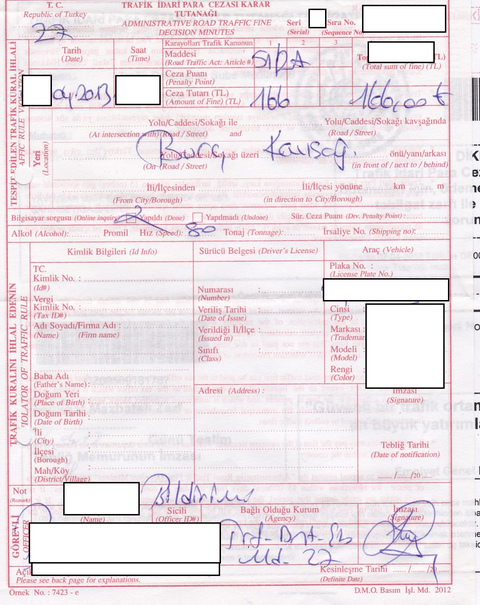 T. C.
Republic of Turkey
TRAFİK İDARİ PARA CEZASI KARAR
TUTANAĞI
ADMINISTRATIVE ROAD TRAFFIC FINE
DECISION MINUTES
Seri
(Serial)
Sıra No.
(Sequence No
Tarih
(Date)
Saat
(Time)
Karayolları Trafik Kanunu
Maddesi
(Road Traffic Act: Article #)
1 2 3
(Total sum of fine) (TL)
Ceza Puanı
(Penalty Point)
Ceza Tutarı (TL)
(Amount of Fine) (TL)
166
166,00
TESPİT EDİLEN TRAFİK KURAL İHLALİ
Yeri
(Location)
Yolu/Caddesi/Sokağı ile
(At intersection with) (Road / Street)
Yolu/Caddesi/Sokağı kavşağında
(Road / Street)
Yolu/Caddesi/Sokağı üzeri
(On) (Road / Street)
Kavşağı
önü/yanı/arkası
(in front of / next to / behind)
İli/İlçesinden
(From City/Borough)
İli/İlçesi yönüne
(in direction to City/Borough)
km
m
Bilgisayar sorgusu (Online inquiry) Yapıldı (Done) Yapılmadı (Undone) Sür. Ceza Puanı (Drv. Penalty Point) :
Alkol (Alcohol): Promil Hız (Speed): 80 Tonaj (Tonnage): İrsaliye No. (Shipping no):
TRAFİK KURALINI İHLAL EDENİN
VIOLATOR OF TRAFFIC RULE
Kimlik Bilgileri (Id Info)
Sürücü Belgesi (Driver's License)
Araç (Vehicle)
TC.
Kimlik No. :
(Id#)
Vergi
Kimlik No. :
(Tax ID#)
Adı Soyadı/Firma Adı :
(Name) (Firm name)
Baba Adı
(Father's Name):
Doğum Yeri
(Place of Birth) :
Doğum Tarihi
(Date of Birth)
İli
(City)
İlçesi
(Borough)
Mah/Köy
(District/Village)
Numarası
(Number)
Veriliş Tarihi
(Date of Issue)
Verildiği İl/İlçe
(Issued in)
Sınıfı
(Class)
Adresi (Address) :
Plaka No. :
(License Plate No.)
Cinsi
(Type)
Markası
(Trademar
Modeli
(Model)
Rengi
(Color)
İmzası
(Signature)
Tebliğ Tarihi
(Date of notification)
Not
(Remark)
GÖREVLİ
OFFICER
(Name)
Sicili
(Officer ID#)
Bağlı Olduğu Kurum
(Agency)
İmzası
(Signature)
Please see back page for explanations.
Kesinleşme Tarihi
(Definite Date)
Örnek No. : 7423 - e
D.M.O. Basım İşl. Md. 2012